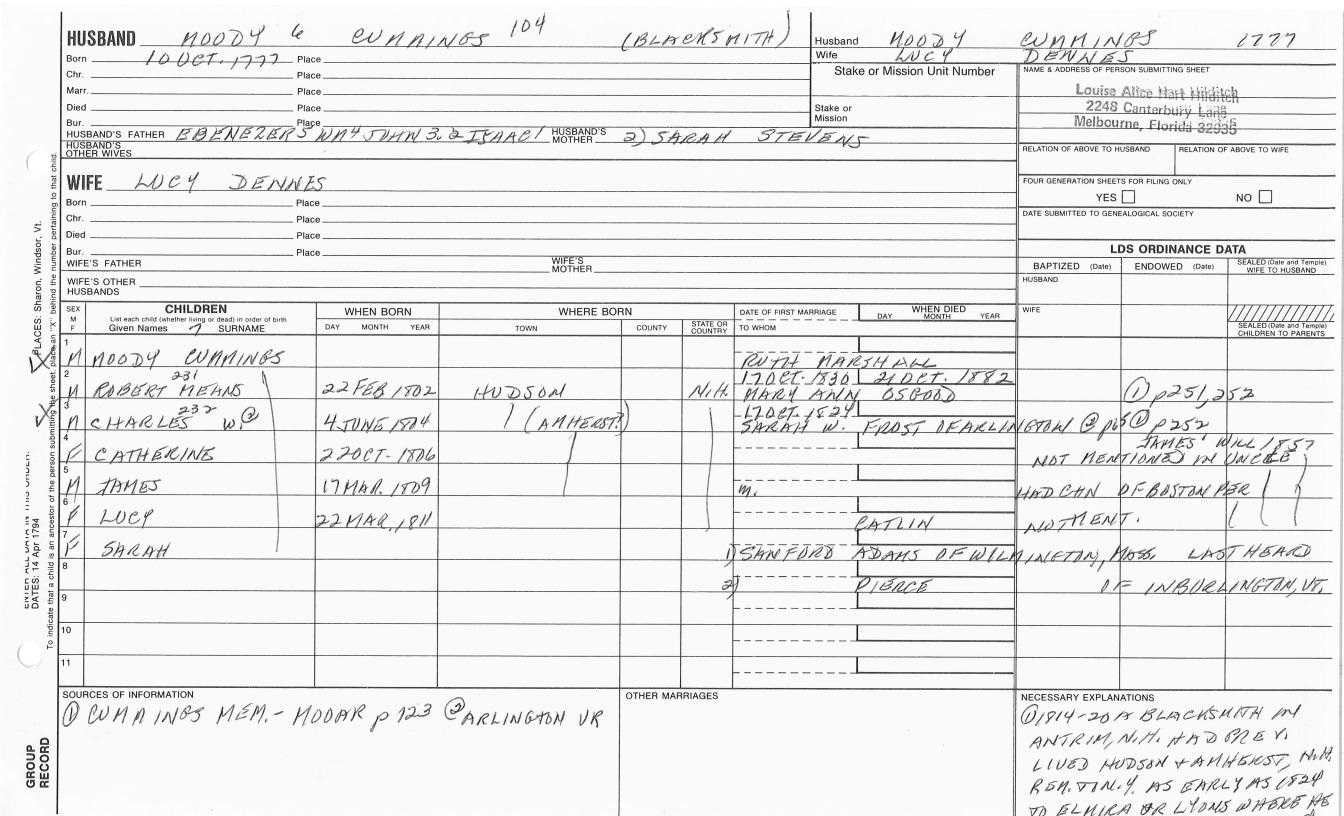 HUSBAND MOODY 6 CUMMINGS 104 (BLACKSMITH)
Born 10 OCT. 1777 Place
Chr. Place
Marr. Place
Died Place
Bur. Place
HUSBAND'S FATHER EBENEZER5 WM4 JOHN 3.2 ISAAC1 HUSBAND'S MOTHER 2) SARAH STEVENS
HUSBAND'S OTHER WIVES
Husband MOODY CUMMINGS 1777
Wife LUCY DENNES
Stake or Mission Unit Number
Stake or Mission
NAME & ADDRESS OF PERSON SUBMITTING SHEET
Louise Alice Hart Hilditch
2248 Canterbury Lane
Melbourne, Florida 32935
RELATION OF ABOVE TO HUSBAND RELATION OF ABOVE TO WIFE
FOUR GENERATION SHEETS FOR FILING ONLY
YES NO
DATE SUBMITTED TO GENEALOGICAL SOCIETY
WIFE LUCY DENNES
Born Place
Chr. Place
Died Place
Bur. Place
WIFE'S FATHER WIFE'S MOTHER
WIFE'S OTHER HUSBANDS
LDS ORDINANCE DATA
BAPTIZED (Date) ENDOWED (Date) SEALED (Date and Temple) WIFE TO HUSBAND
HUSBAND
WIFE
SEALED (Date and Temple) CHILDREN TO PARENTS
SEX M F
CHILDREN
List each child (whether living or dead) in order of birth
Given Names 7 SURNAME
WHEN BORN
DAY MONTH YEAR
WHERE BORN
TOWN COUNTY STATE OR COUNTRY
DATE OF FIRST MARRIAGE
TO WHOM
WHEN DIED
DAY MONTH YEAR
1 M MOODY CUMMINGS RUTH MARSHALL
2 M ROBERT MEANS 231 22 FEB 1802 HUDSON N.H. 17 OCT. 1830 21 OCT. 1882 MARY ANN OSGOOD ① p251, 252
3 M CHARLES W. ② 232 4 JUNE 1804 (AMHERST?) 17 OCT. 1824 SARAH W. FROST OF ARLINGTON ② ① p252
4 F CATHERINE 22 OCT. 1806 NOT MENTIONED IN UNCLE JAMES' WILL 1857
5 M JAMES 17 MAR. 1809 m. HAD CHN OF BOSTON PER
6 F LUCY 22 MAR. 1811 CATLIN NOT MENT.
7 F SARAH 1) SANFORD ADAMS OF WILMINGTON, MASS. LAST HEARD
8 2) PIERCE OF IN BURLINGTON, VT.
9
10
11
SOURCES OF INFORMATION
① CUMMINGS MEM. - MOOAR p 123 ② ARLINGTON VR
OTHER MARRIAGES
NECESSARY EXPLANATIONS
① 1814-20 A BLACKSMITH IN
ANTRIM, N.H. HAD PREV.
LIVED HUDSON + AMHERST, N.H.
REM. TO N.Y. AS EARLY AS 1824
TO ELMIRA OR LYONS WHERE HE
GROUP RECORD
DATES: 14 Apr 1794
PLACES: Sharon, Windsor, Vt.
To indicate that a child is an ancestor of the person submitting the sheet, place an "X" behind the number pertaining to that child.